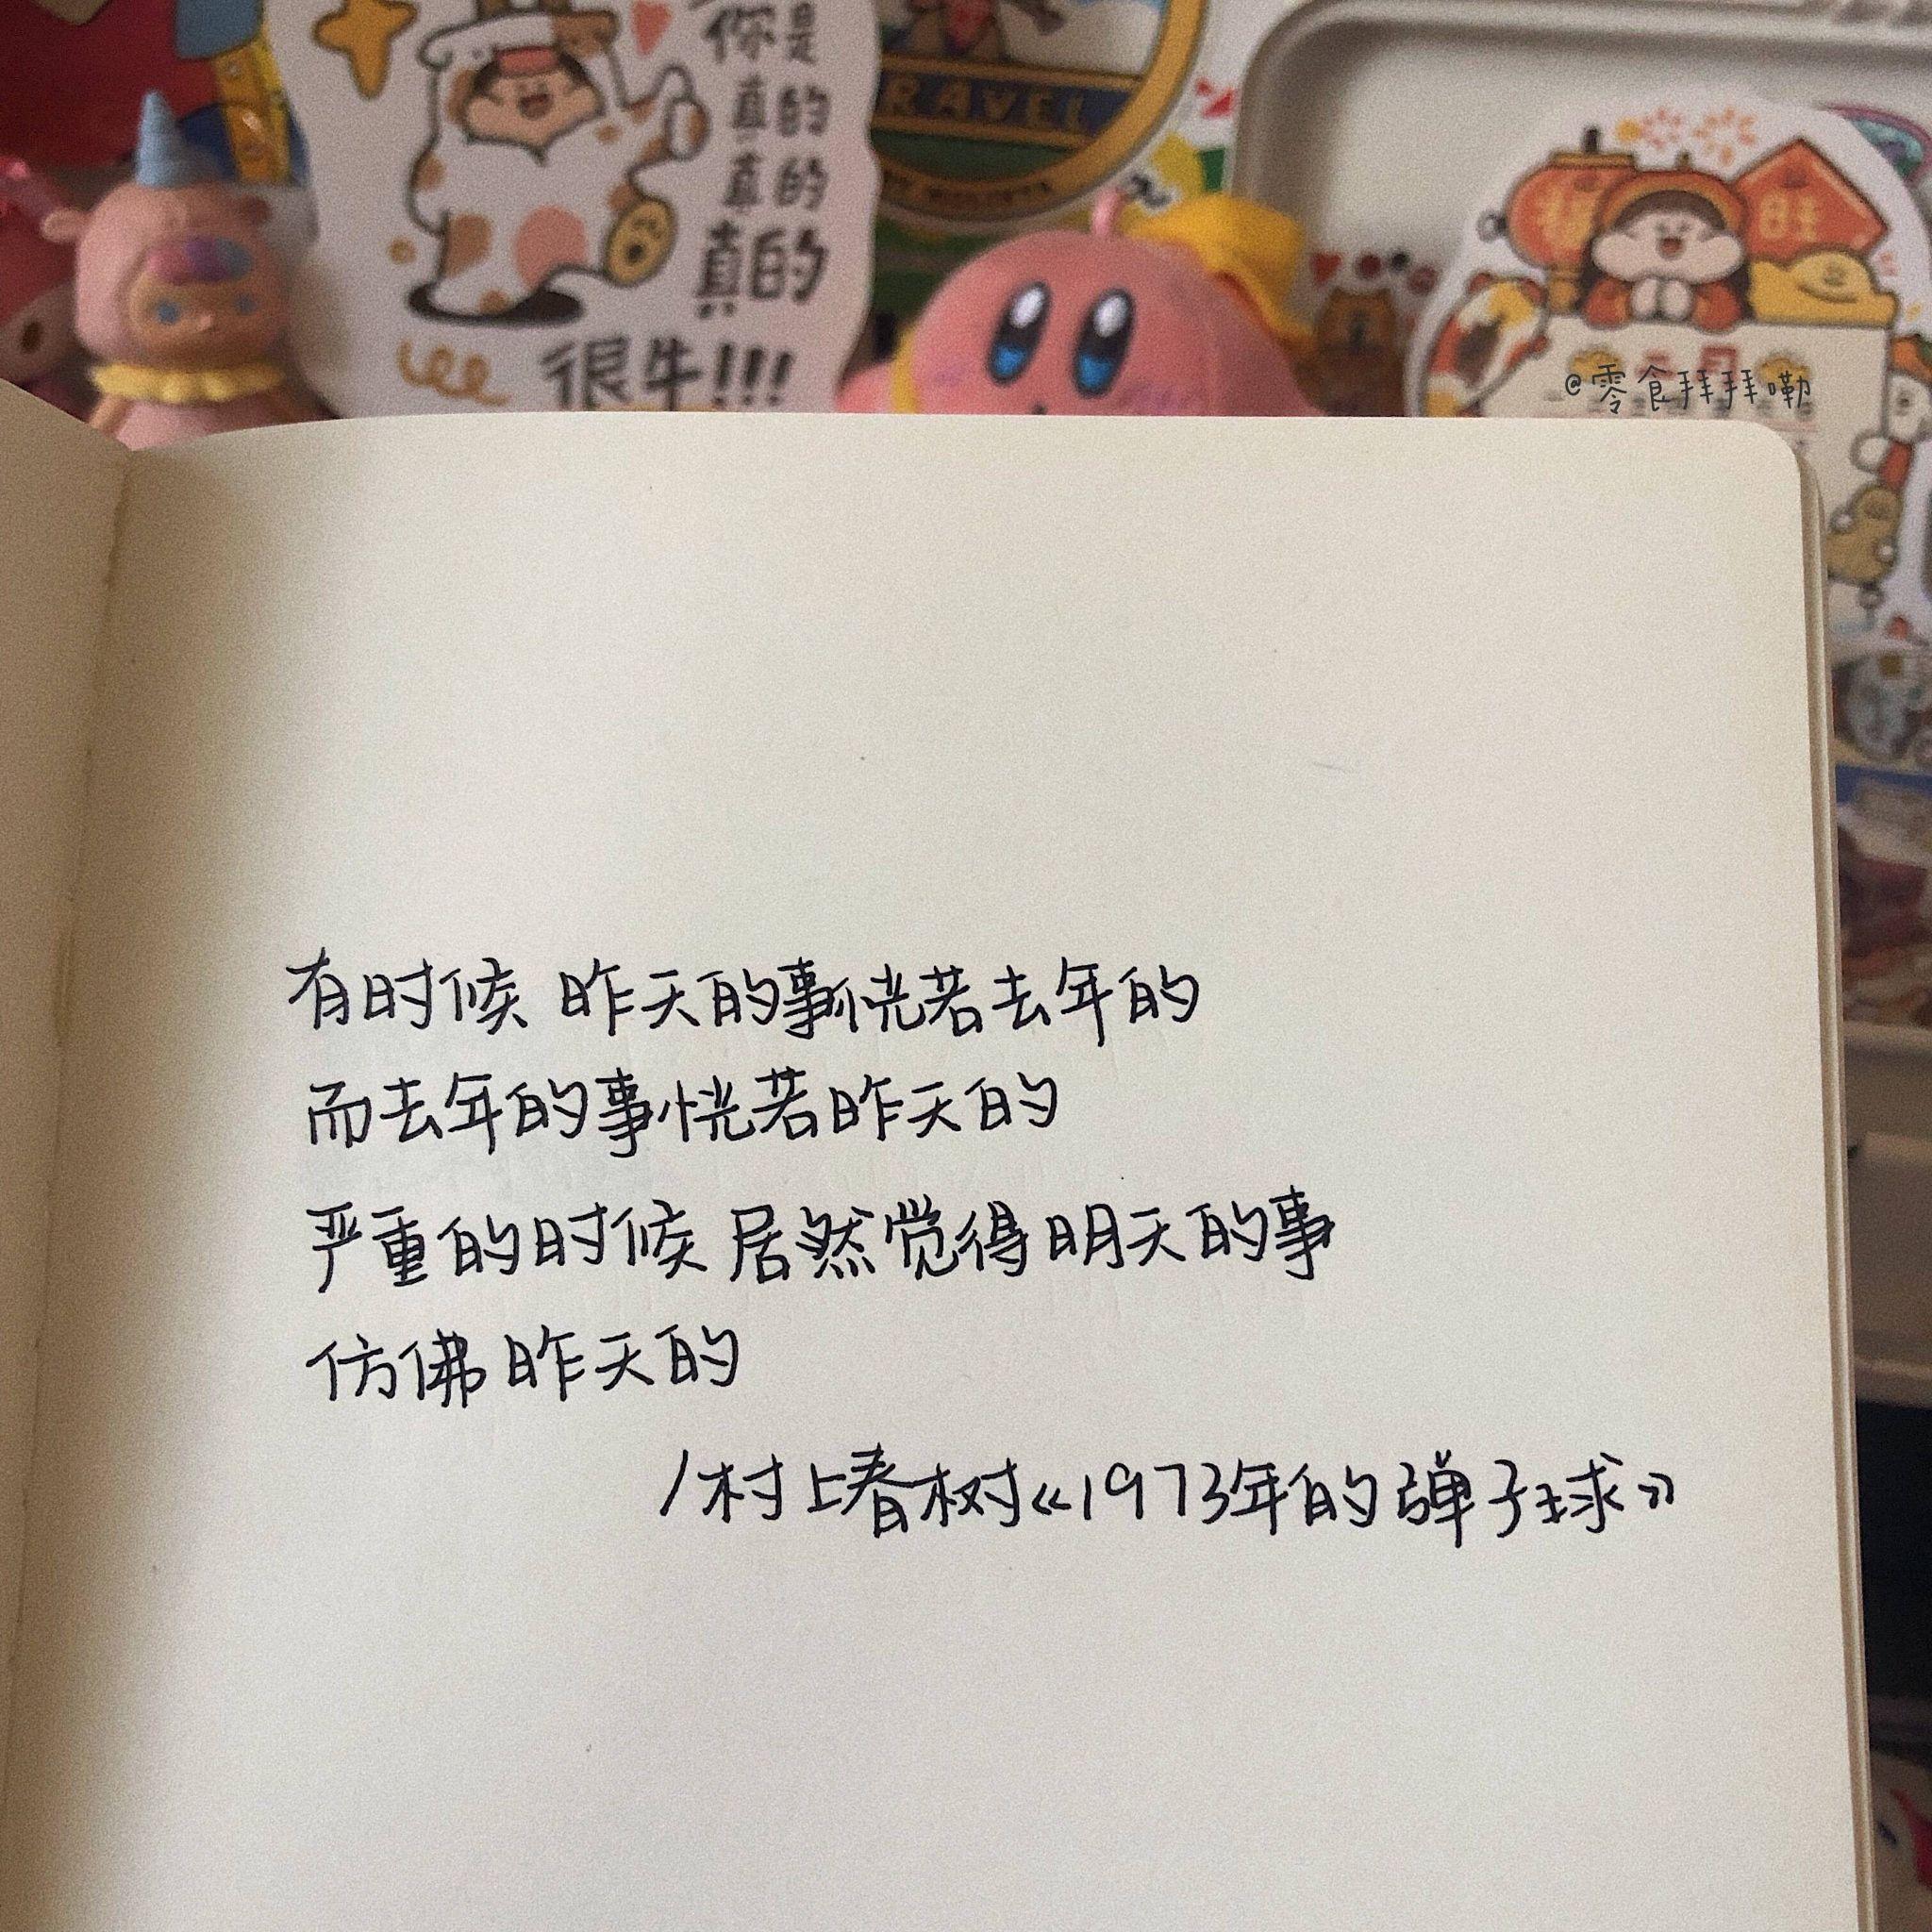 你是
真的
真的
真的
很牛!!!
RAVEL
旺
@零食拜拜嘞
有时候 昨天的事恍若去年的
而去年的事恍若昨天的
严重的时候 居然觉得明天的事
仿佛昨天的
/村上春树《1973年的弹子球》